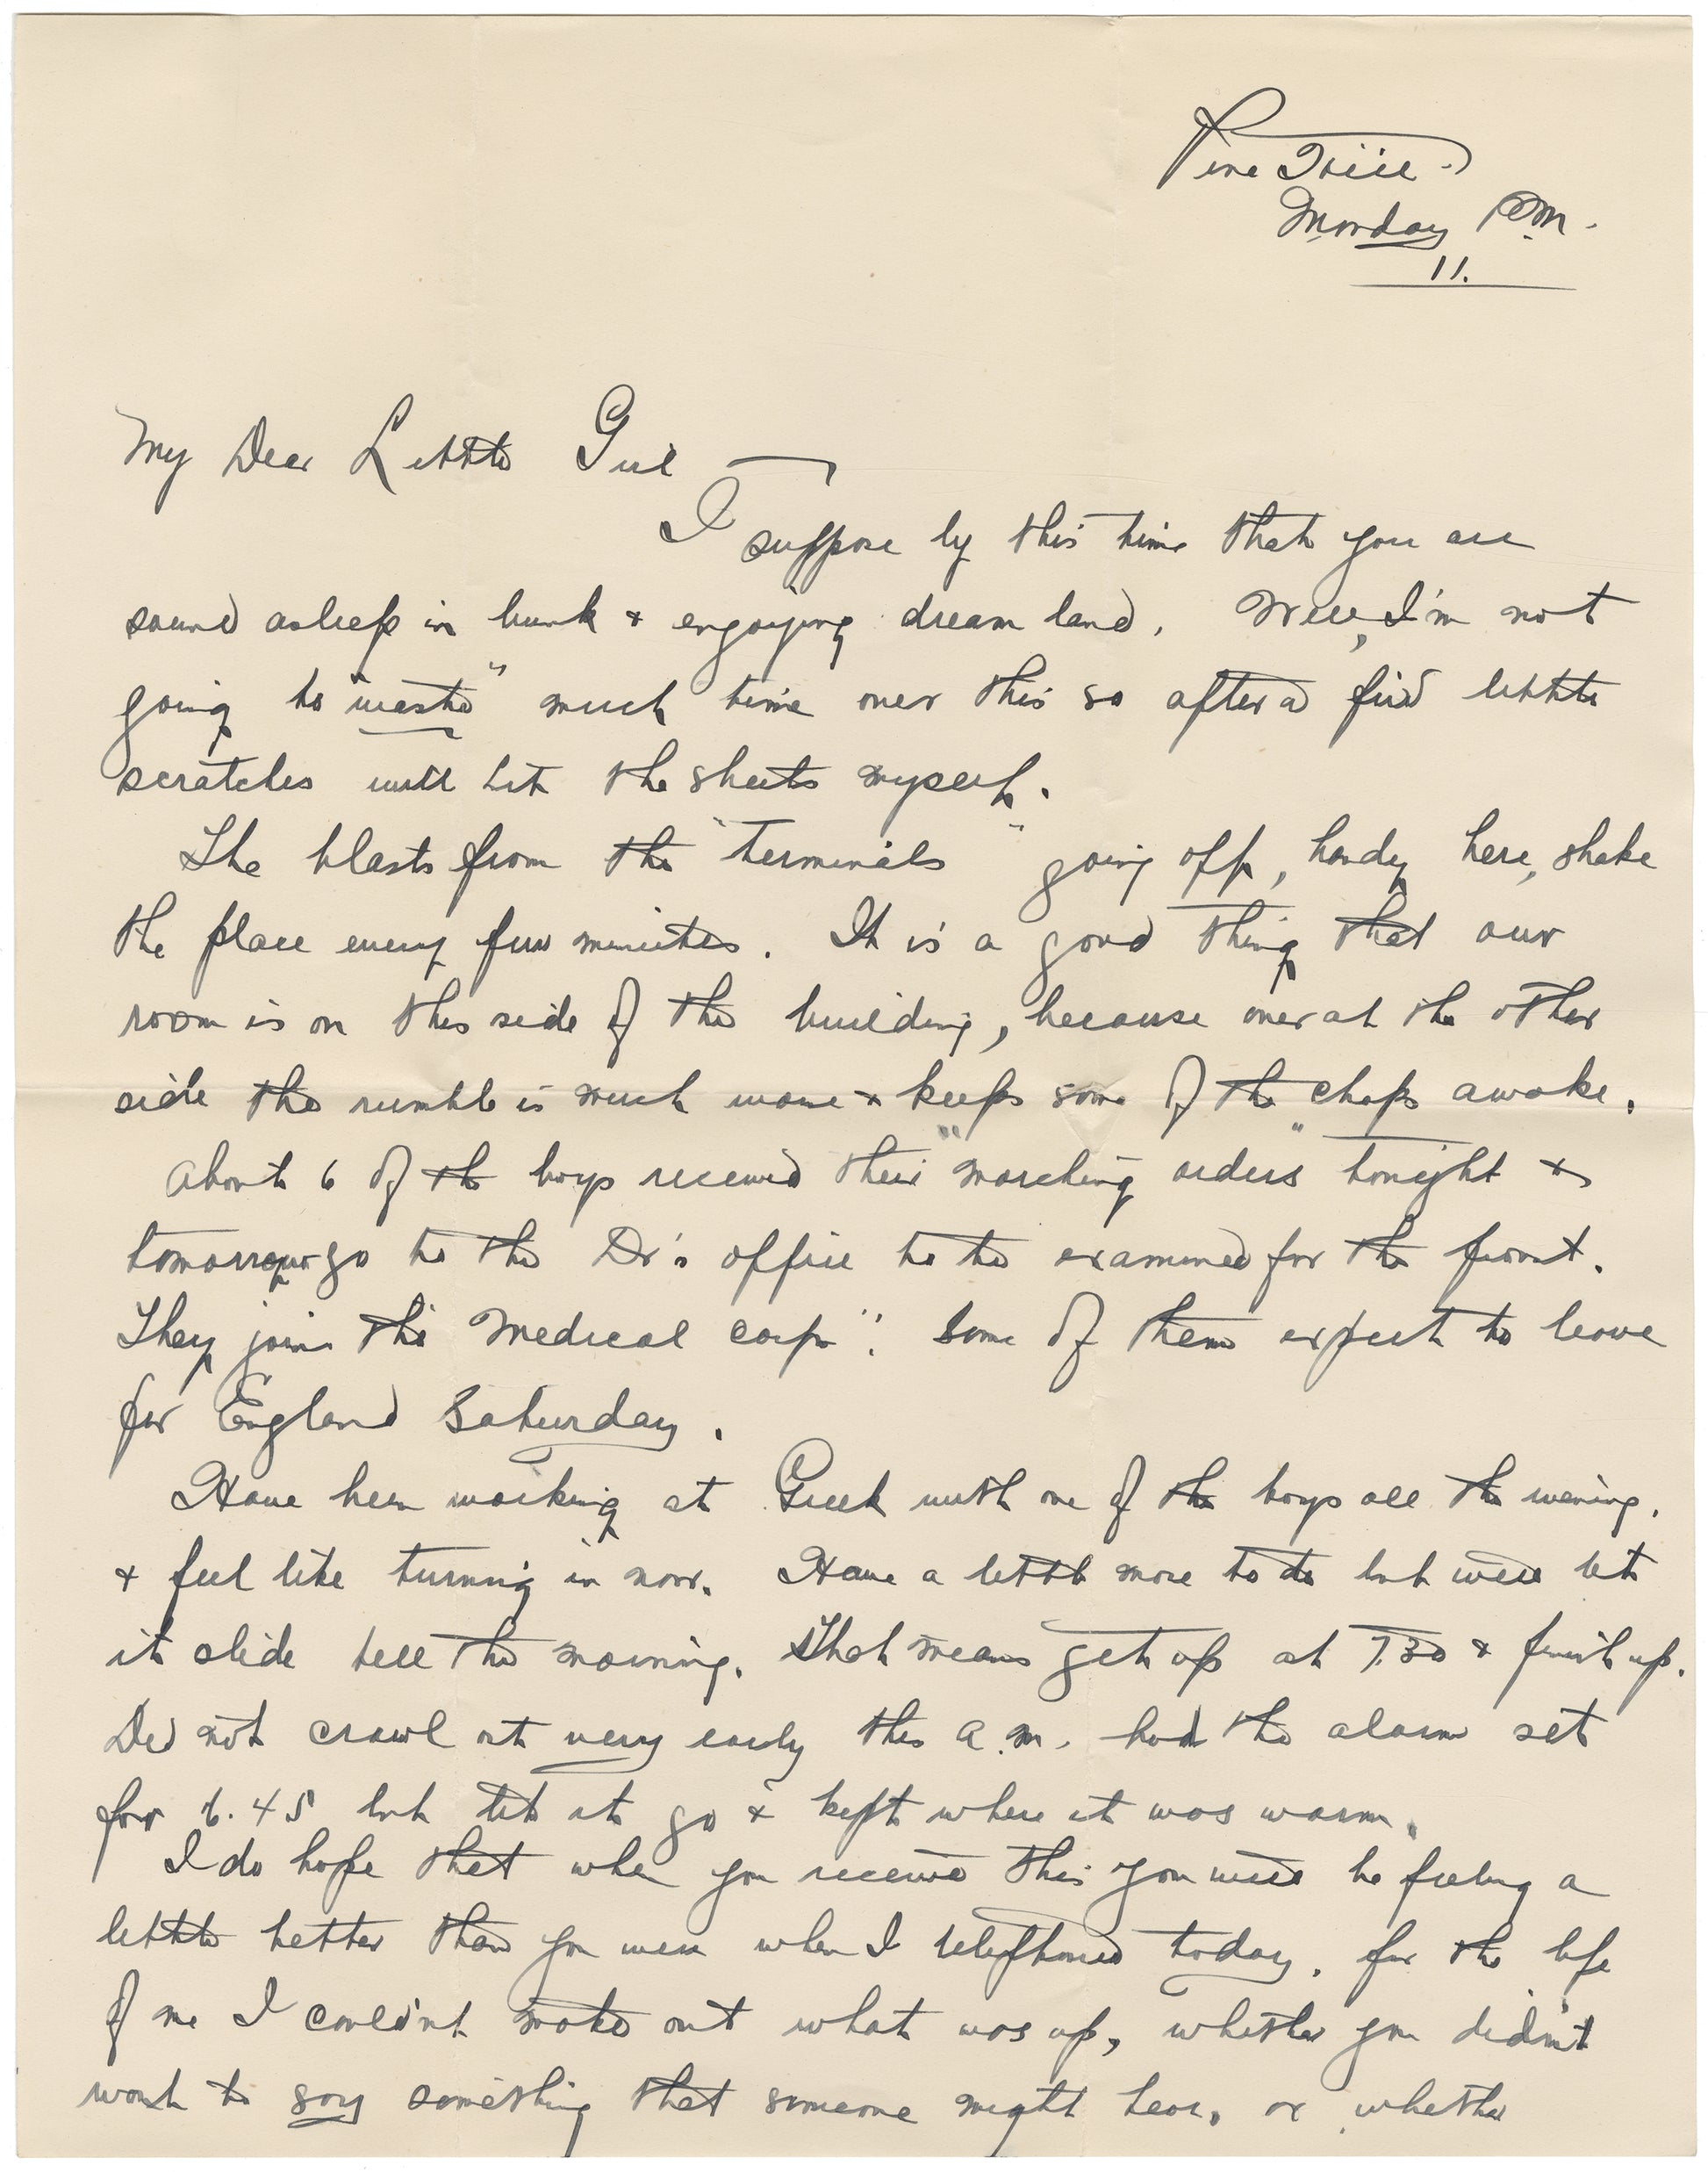 Pine Hill.
Monday PM.
11.
My Dear Little Girl —
I suppose by this time that you are
sound asleep in bunk & enjoying dream land. Well, I'm not
going to "waste" much time over this so after a few little
scratches will hit the sheets myself.
The blasts from the "terminals" going off, handy here, shake
the place every few minutes. It is a good thing that our
room is on this side of the building, because over at the other
side the rumble is much worse & keeps some of the "chaps" awake.
About 6 of the boys received their "marching orders" tonight &
tomorrow go to the Dr's office to be examined for the front.
They join the "Medical Corps". Some of them expect to leave
for England Saturday.
Have been working at Greek with one of the boys all the evening.
& feel like turning in now. Have a little more to do but will let
it slide till the morning. That means get up at 7.30 & finish up.
Did not crawl out very early this a.m. had the alarm set
for 6.45 but let it go & kept where it was warm.
I do hope that when you receive this you will be feeling a
little better than you were when I telephoned today. for the life
of me I couldn't make out what was up, whether you didn't
want to say something that someone might hear, or whether